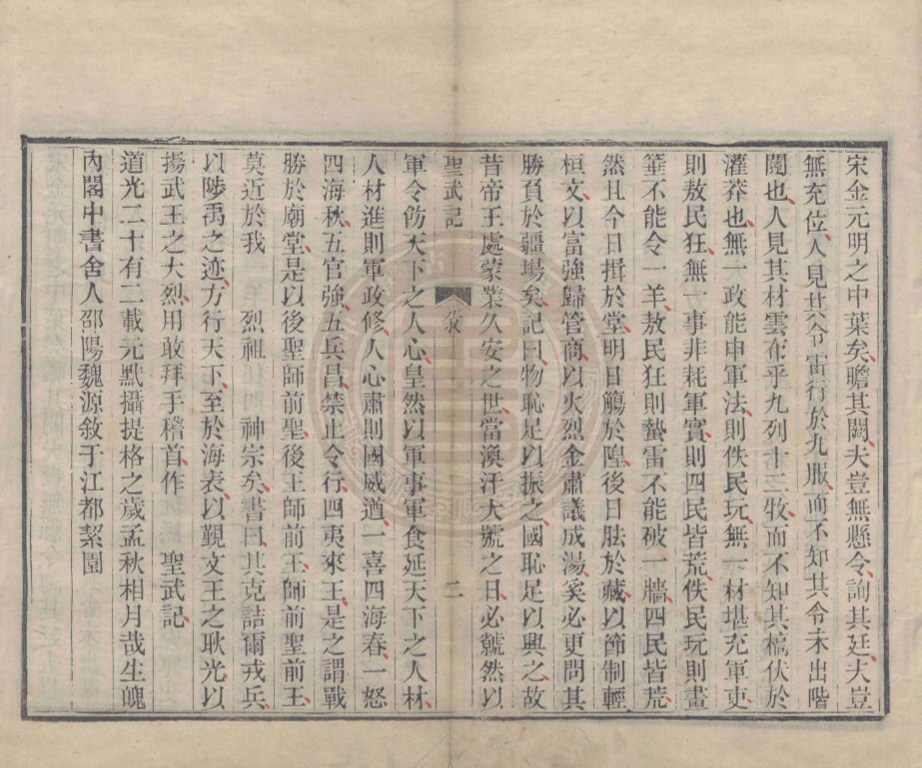 宋金元明之中葉矣瞻其闕夫豈無懸令詢其廷夫豈
無充位人見其令雷行於九服而不知其令未出階
闥也人見其材雲布乎九列十三牧而不知其槁伏於
灌莽也無一政能申軍法則佚民玩無一材堪充軍吏
則敖民狂無一事非耗軍實則四民皆荒佚民玩則畫
箠不能令一羊敖民狂則蟄雷不能破一牆四民皆荒
然且今日揖於堂明日觴於隍後日胠於藏以節制輕
桓文以富強歸管商以火烈金肅議成湯奚必更問其
勝負於疆場矣記曰物恥足以振之國恥足以興之故
昔帝王處蒙業久安之世當渙汗大號之日必虩然以
聖武記
敘
二
軍令飭天下之人心皇然以軍事軍食延天下之人材
人材進則軍政修人心肅則國威遒一喜四海春一怒
四海秋五官強五兵昌禁止令行四夷來王是之謂戰
勝於廟堂是以後聖師前聖後王師前王師前聖前王
莫近於我 烈祖 神宗矣書曰其克詰爾戎兵
以陟禹之迹方行天下至於海表以覲文王之耿光以
揚武王之大烈用敢拜手稽首作 聖武記
道光二十有二載元默攝提格之歲孟秋相月哉生魄
內閣中書舍人邵陽魏源敘于江都絜園